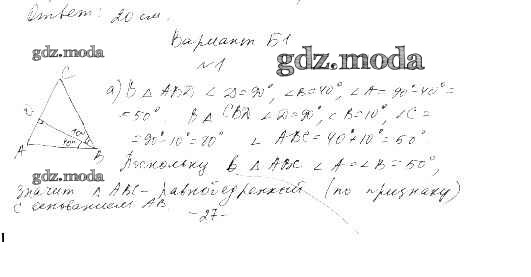 Ответ: 20 см.
Вариант Б1
gdz.moda
gdz.moda
№1
C
D
10°
40°
A
B
а) В △ ABD ∠D=90°, ∠B=40°, ∠A=90°-40°=
=50°. В △ CBD ∠D=90°, ∠B=10°, ∠C=
=90°-10°=80° ∠ABC=40°+10°=50°
Поскольку в △ ABC ∠A=∠B=50°,
gdz.moda
значит △ ABC - равнобедренный (по признаку)
с основанием AB.
-27-